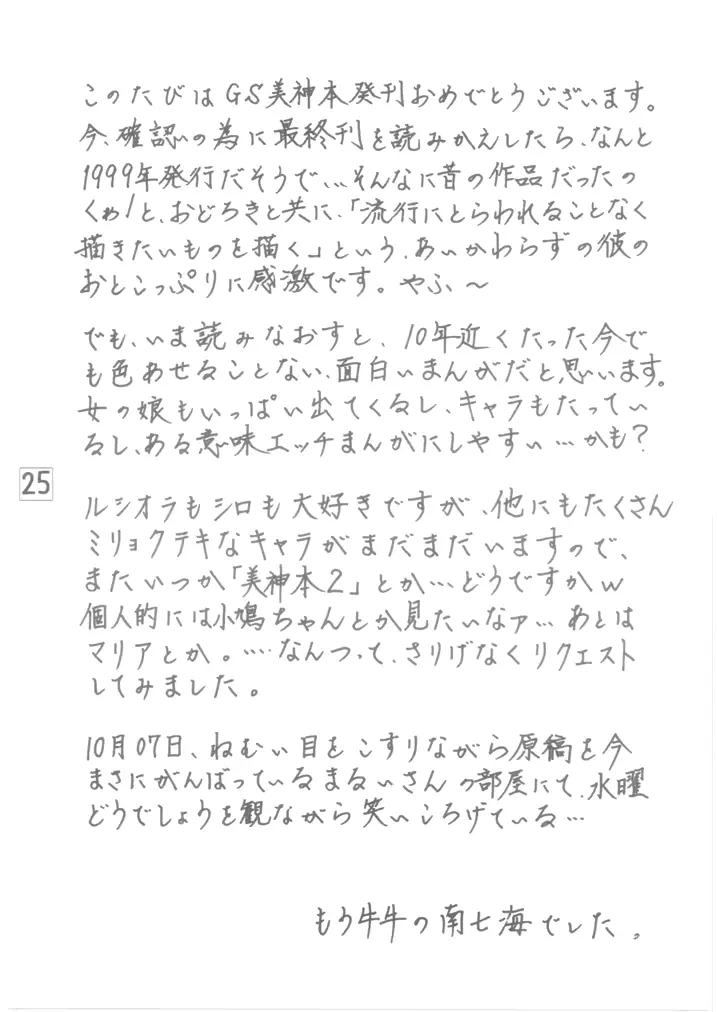 このたびはGS美神本発刊おめでとうございます。
今、確認の為に最終刊を読みかえしたら、なんと
1999年発行だそうで、、、そんなに昔の作品だったの
くゎ!と、おどろきと共に、「流行にとらわれることなく
描きたいものを描く」という、あいかわらずの彼の
おとこっぷりに感激です。やふ～
でも、いま読みなおすと、10年近くたった今で
も色あせることない、面白いまんがだと思います。
女の娘もいっぱい出てくるし、キャラもたってい
るし、ある意味エッチまんがにしやすい…かも?
25
ルシオラもシロも大好きですが、他にもたくさん
ミリョクテキなキャラがまだまだいますので、
またいつか「美神本2」とか…どうですかw
個人的には小鳩ちゃんとか見たいなァ…あとは
マリアとか。….なんつって、さりげなくリクエスト
してみました。
10月07日、ねむい目をこすりながら原稿を今
まさにがんばっているまるぃさんの部屋にて、水曜
どうでしょうを観ながら笑いころげている…
もう牛牛の南七海でした。